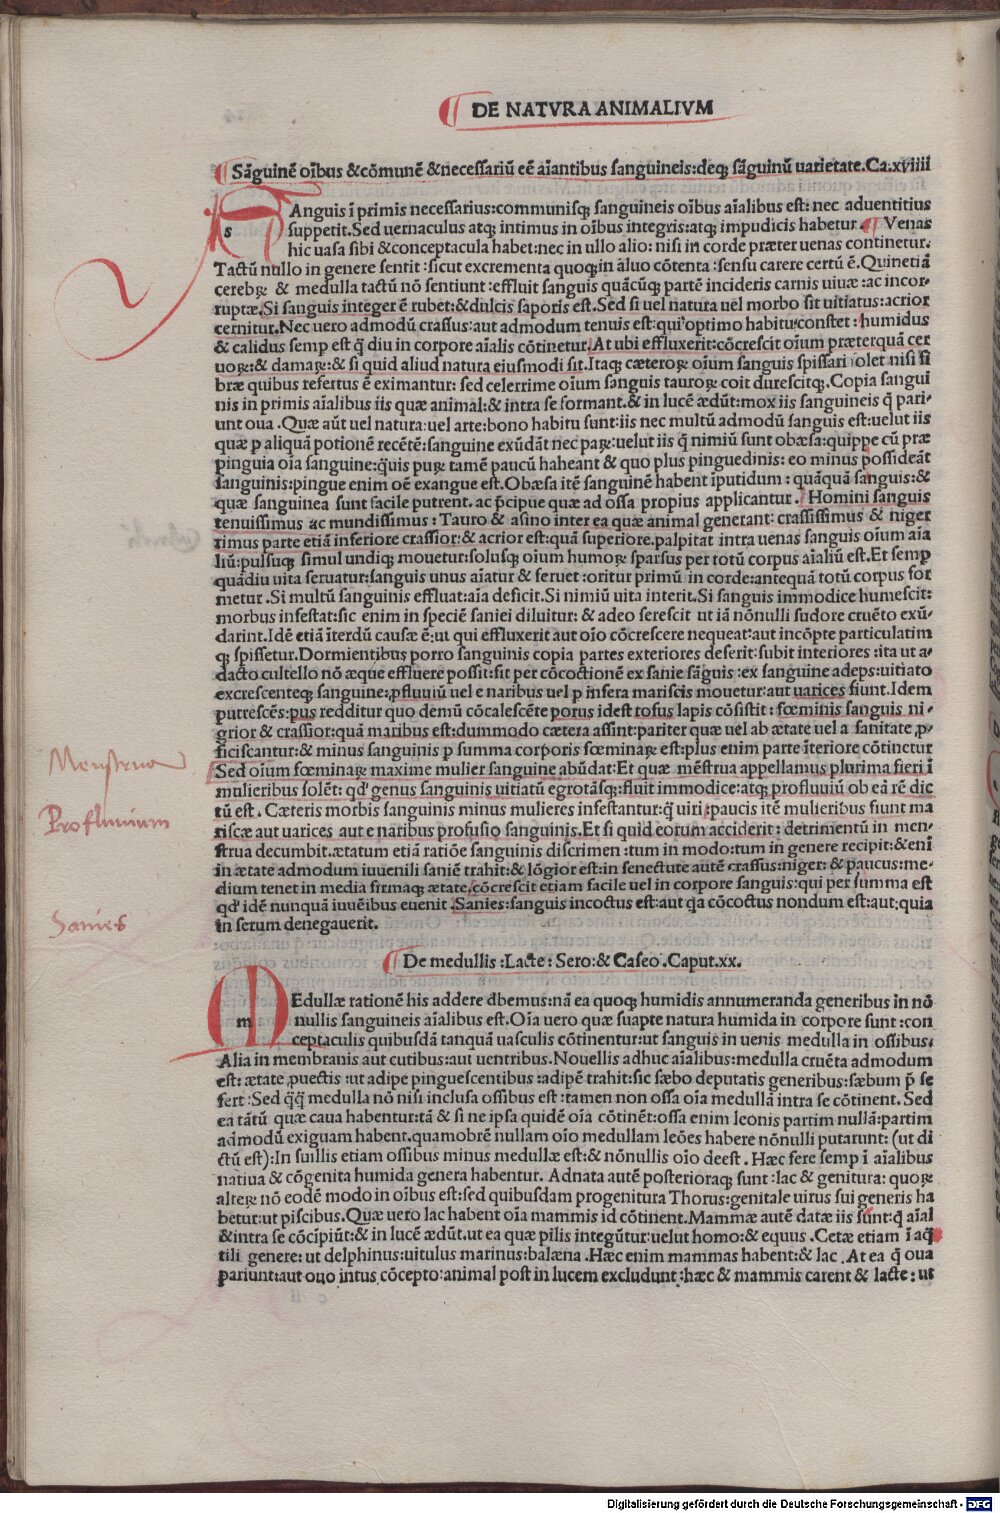 DE NATVRA ANIMALIVM
Sãguinẽ oĩbus &cõmunẽ &necessariũ eẽ aĩantibus sanguineis:deqȝ sãguinũ uarietate.Ca.xviiii
s
Anguis ĩ primis necessarius:communisqȝ sanguineis oĩbus aĩalibus est: nec aduentitius
suppetit.Sed uernaculus atqȝ intimus in oĩbus integris:atqȝ impudicis habetur. Venas
hic uasa sibi &conceptacula habet:nec in ullo alio: nisi in corde præter uenas continetur.
Tactũ nullo in genere sentit :sicut excrementa quoqȝ:in aluo cõtenta :sensu carere certũ ẽ.Quinetiã
cerebꝝ & medulla tactũ nõ sentiunt :effluit sanguis quãcũqȝ partẽ incideris carnis uiuæ :ac incor-
ruptæ.Si sanguis integer ẽ rubet:&dulcis saporis est.Sed si uel natura uel morbo sit uitiatus:acrior
cernitur.Nec uero admodũ crassus:aut admodum tenuis est:qui optimo habitu constet : humidus
& calidus semp est q̃ diu in corpore aĩalis cõtinetur.At ubi effluxerit:cõcrescit oĩum præterquã cer
uoꝝ:& damaꝝ:& si quid aliud natura eiusmodi sit.Itaqȝ cæteroꝝ oĩum sanguis spissari solet nisi fi
bræ quibus refertus ẽ eximantur: sed celerrime oĩum sanguis tauroꝝ coit durescitqȝ.Copia sangui
nis in primis aĩalibus iis quæ animal:& intra se formant.& in lucẽ ædũt:mox iis sanguineis q̃ pari-
unt oua .Quæ aũt uel natura:uel arte:bono habitu sunt:iis nec multũ admodũ sanguis est:uelut iis
quæ p aliquã potionẽ recẽtẽ:sanguine exũdãt nec paꝝ:uelut iis q̃ nimiũ sunt obæsa:quippe cũ præ
pinguia oĩa sanguine:q̃uis puꝝ tamẽ paucũ habeant & quo plus pinguedinis: eo minus possideãt
sanguinis:pingue enim oẽ exangue est.Obæsa itẽ sanguinẽ habent ĩputidum : quãquã sanguis:&
quæ sanguinea sunt facile putrent. ac p̃cipue quæ ad ossa propius applicantur . Homini sanguis
tenuissimus ac mundissimus : Tauro & asino inter ea quæ animal generant: crassissimus & niger
rimus parte etiã inferiore crassior:& acrior est:quã superiore.palpitat intra uenas sanguis oĩum aĩa
liũ:pulsuqȝ simul undiqȝ mouetur:solusqȝ oĩum humoꝝ sparsus per totũ corpus aĩaliũ est.Et semp
quãdiu uita seruatur:sanguis unus aĩatur & feruet :oritur primũ in corde:antequã totũ corpus for
metur .Si multũ sanguinis effluat:aĩa deficit.Si nimiũ uita interit.Si sanguis immodice humescit:
morbus infestat:sic enim in speciẽ saniei diluitur: & adeo serescit ut iã nõnulli sudore cruẽto exũ-
darint.Idẽ etiã ĩterdũ causæ ẽ:ut qui effluxerit aut oĩo cõcrescere nequeat:aut incõpte particulatim
qȝ spissetur.Dormientibus porro sanguinis copia partes exteriores deserit:subit interiores :ita ut a-
dacto cultello nõ æque effluere possit:fit per cõcoctionẽ ex sanie sãguis :ex sanguine adeps:uitiato
excrescenteqȝ sanguine:pfluuiũ uel e naribus uel p infera mariscis mouetur:aut uarices fiunt.Idem
putrescẽs:pus redditur quo demũ cõcalescẽte porus idest tofus lapis cõsistit : fœminis sanguis ni-
grior & crassior:quã maribus est:dummodo cætera assint:pariter quæ uel ab ætate uel a sanitate ,p-
ficiscantur:& minus sanguinis p summa corporis fœminaꝝ est:plus enim parte ĩteriore cõtinetur
Sed oĩum fœminaꝝ maxime mulier sanguine abũdat:Et quæ mẽstrua appellamus plurima fieri ĩ
mulieribus solẽt: qd' genus sanguinis uitiatũ egrotãsqȝ:fluit immodice:atqȝ profluuiũ ob eã rẽ dic
tũ est. Cæteris morbis sanguinis minus mulieres infestantur:q̃ uiri:paucis itẽ mulieribus fiunt ma
riscæ aut uarices aut e naribus profusio sanguinis.Et si quid eorum acciderit : detrimentũ in men-
strua decumbit.ætatum etiã ratiõe sanguinis discrimen :tum in modo:tum in genere recipit:&enĩ
in ætate admodum iuuenili saniẽ trahit:& lõgior est:in senectute autẽ crassus:niger: & paucus:me-
dium tenet in media firmaqȝ ætate.cõcrescit etiam facile uel in corpore sanguis:qui per summa est
qd' idẽ nunquã iuuẽibus euenit .Sanies:sanguis incoctus est:aut q̃a cõcoctus nondum est:aut;quia
in serum denegauerit.
Menstrua
Profluuium
Sanies
De medullis :Lacte : Sero:& Caseo .Caput.xx.
m
Edullæ rationẽ his addere dbemus:nã ea quoqȝ humidis annumeranda generibus in nõ
nullis sanguineis aĩalibus est.Oĩa uero quæ suapte natura humida in corpore sunt :con
ceptaculis quibusdã tanquã uasculis cõtinentur:ut sanguis in uenis medulla in ossibus.
Alia in membranis aut cutibus:aut uentribus.Nouellis adhuc aĩalibus:medulla cruẽta admodum
est: ætate ,puectis :ut adipe pinguescentibus :adipẽ trahit:sic sæbo deputatis generibus:sæbum p̃ se
fert :Sed q̃q̃ medulla nõ nisi inclusa ossibus est :tamen non ossa oĩa medullã intra se cõtinent. Sed
ea tãtũ quæ caua habentur:tã & si ne ipsa quidẽ oĩa cõtinẽt:ossa enim leonis partim nullã:partim
admodũ exiguam habent.quamobrẽ nullam oĩo medullam leões habere nõnulli putarunt: (ut di
ctũ est):In suillis etiam ossibus minus medullæ est:& nõnullis oĩo deest . Hæc fere semp ĩ aĩalibus
natiua & cõgenita humida genera habentur. Adnata autẽ posterioraqȝ sunt :lac & genitura: quoꝝ
alteꝝ nõ eodẽ modo in oĩbus est:sed quibusdam progenitura Thorus:genitale uirus sui generis ha
betur:ut piscibus.Quæ uero lac habent oĩa mammis id cõtinent.Mammæ autẽ datæ iis sũnt:q̃ aĩal
&intra se cõcĩpiũt:& in lucẽ ædũt.ut ea quæ pilis integũtur:uelut homo:& equus .Cetæ etiam ĩ aq̃
tili genere: ut delphinus:uitulus marinus:balæna .Hæc enim mammas habent:& lac .At ea q̃ oua
pariunt:aut ouo intus cõcepto:animal post in lucem excludunt :hæc & mammis carent & lacte : ut
Digitalisierung gefördert durch die Deutsche Forschungsgemeinschaft - DFG